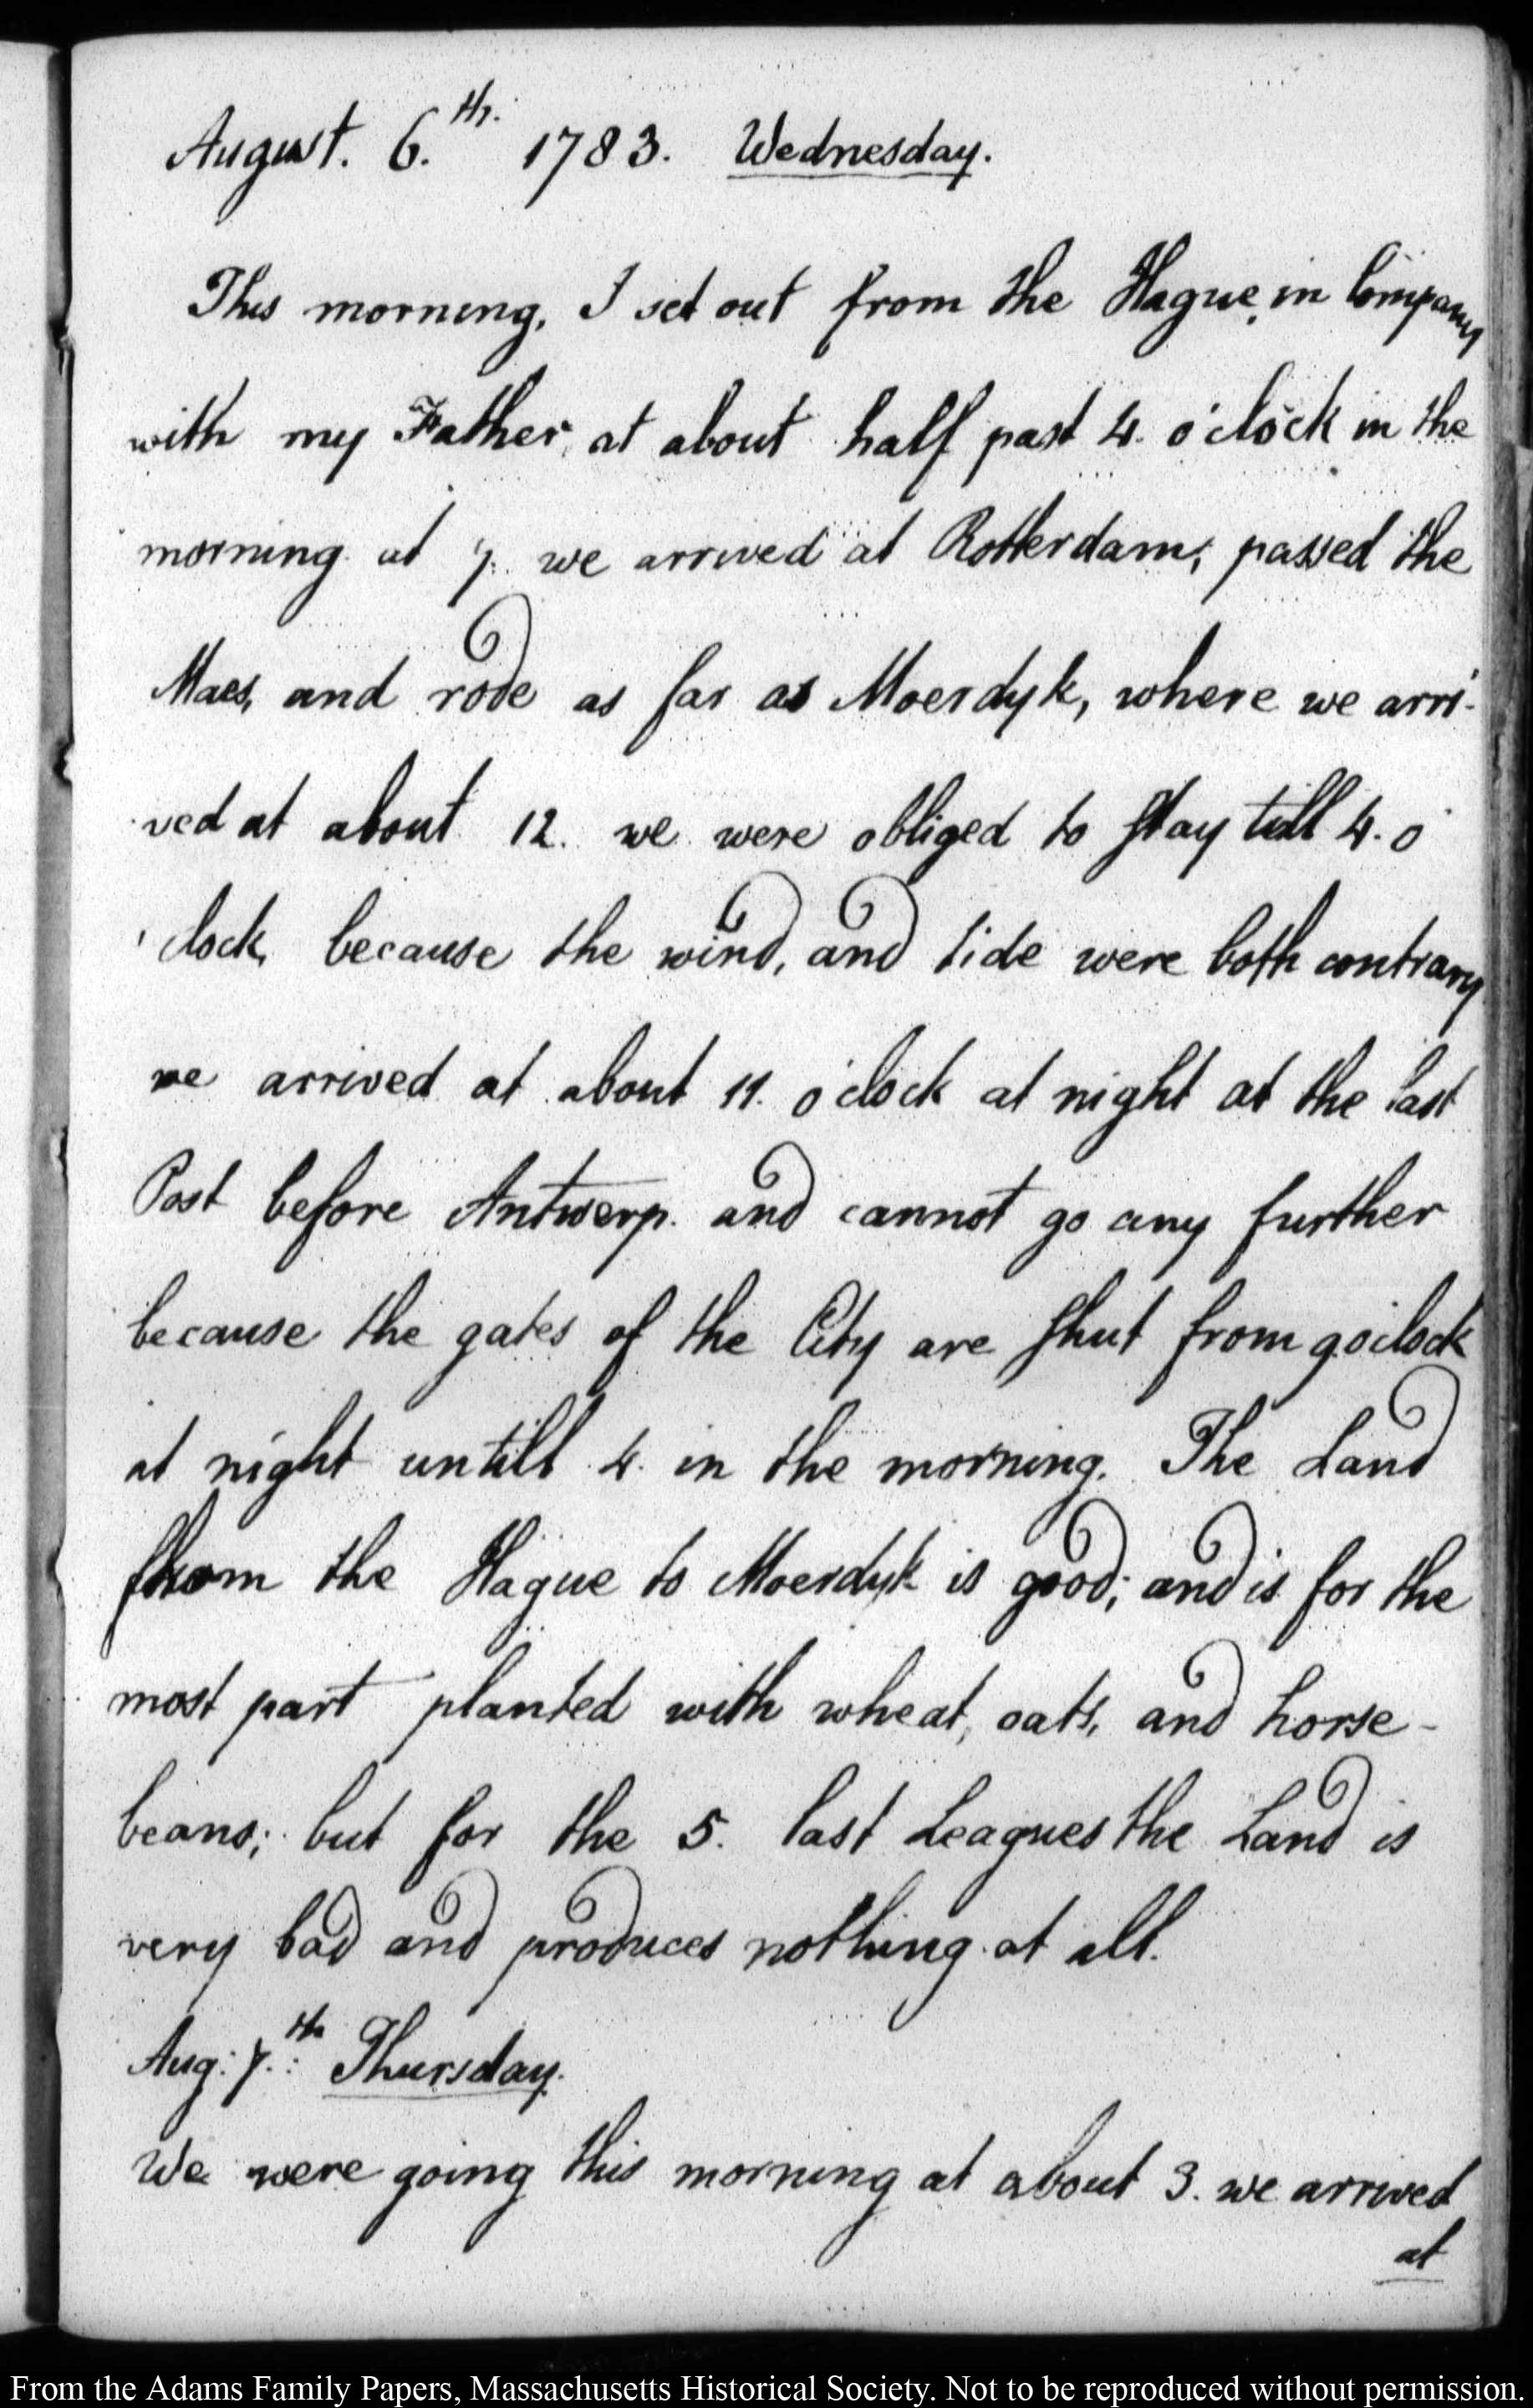 August. 6.th 1783. Wednesday.
This morning, I set out from the Hague, in Company
with my Father, at about half past 4. o'clock in the
morning at 7. we arrived at Rotterdam, passed the
Maes, and rode as far as Moerdyk, where we arri-
ved at about 12. we were obliged to stay till 4. o
'clock, because the wind, and tide were both contrary
we arrived at about 11. o'clock at night at the last
Post before Antwerp. and cannot go any further
because the gates of the City are shut from 9 o'clock
at night untill 4. in the morning. The Land
from the Hague to Moerdyk is good; and is for the
most part planted with wheat, oats, and horse-
beans; but for the 5. last Leagues the Land is
very bad and produces nothing at all.
Aug: 7.th: Thursday.
We were going this morning at about 3. we arrived
at
From the Adams Family Papers, Massachusetts Historical Society. Not to be reproduced without permission.